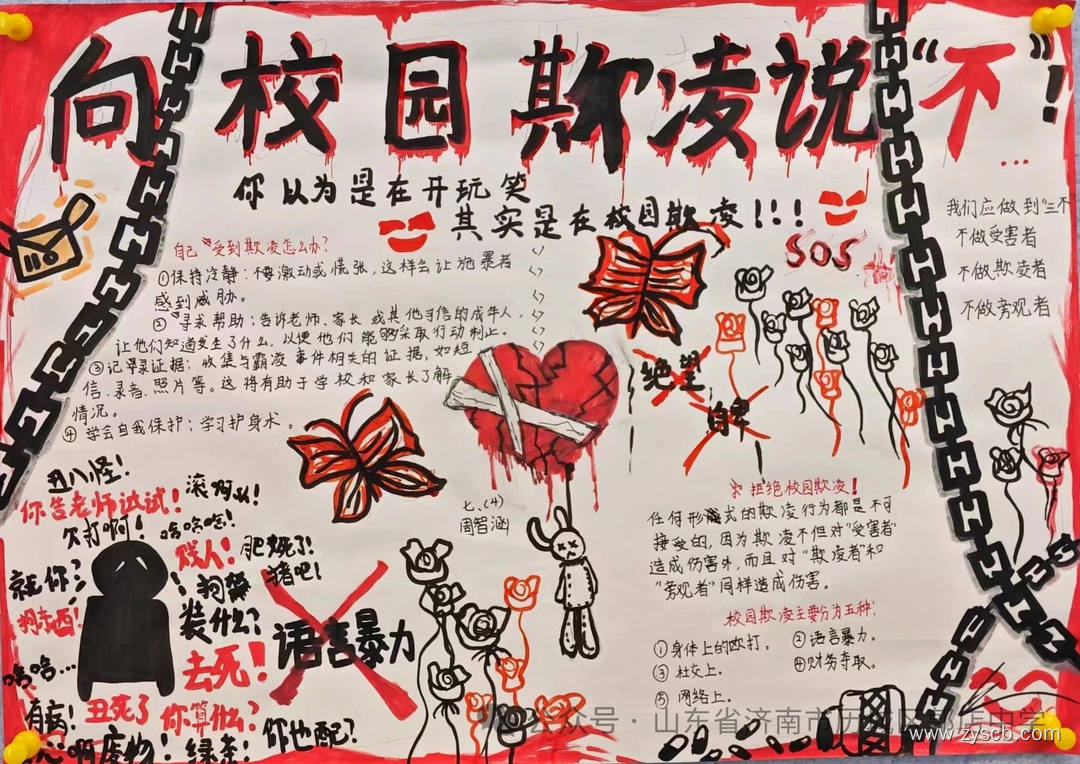 向校园欺凌说“不”!
...
你以为是在开玩笑
其实是在校园欺凌!!!
SOS
我们应做到“三不”
不做受害者
不做欺凌者
不做旁观者
自己受到欺凌怎么办?
①保持冷静:不要激动或慌张,这样会让施暴者
感到威胁。
②寻求帮助:告诉老师、家长或其他可信的成年人,
让他们知道发生了什么,以便他们能够采取行动制止。
③记录证据:收集与霸凌事件相关的证据,如短
信、录音、照片等。这将有助于学校和家长了解
情况。
④学会自我保护:学习护身术。
绝望
自卑
丑八怪!
你告老师试试!
滚啊
欠打啊!
哈哈哈!
贱人!
肥死了!
猪吧!
就你?
狗东西!
装什么?
去死!
哈哈...
有病!
丑死了
你算什么?
废物!
绿茶!
你也配?
语言暴力
七、(4)
周智涵
拒绝校园欺凌!
任何形式的欺凌行为都是不可
接受的,因为欺凌不但对“受害者”
造成伤害外,而且对“欺凌者”和
“旁观者”同样造成伤害。
校园欺凌主要分为五种:
①身体上的殴打。
②语言暴力。
③社交上。
④财务夺取。
⑤网络上。
公众号·山东省济南市历城区郭店中学
www.zyscb.com